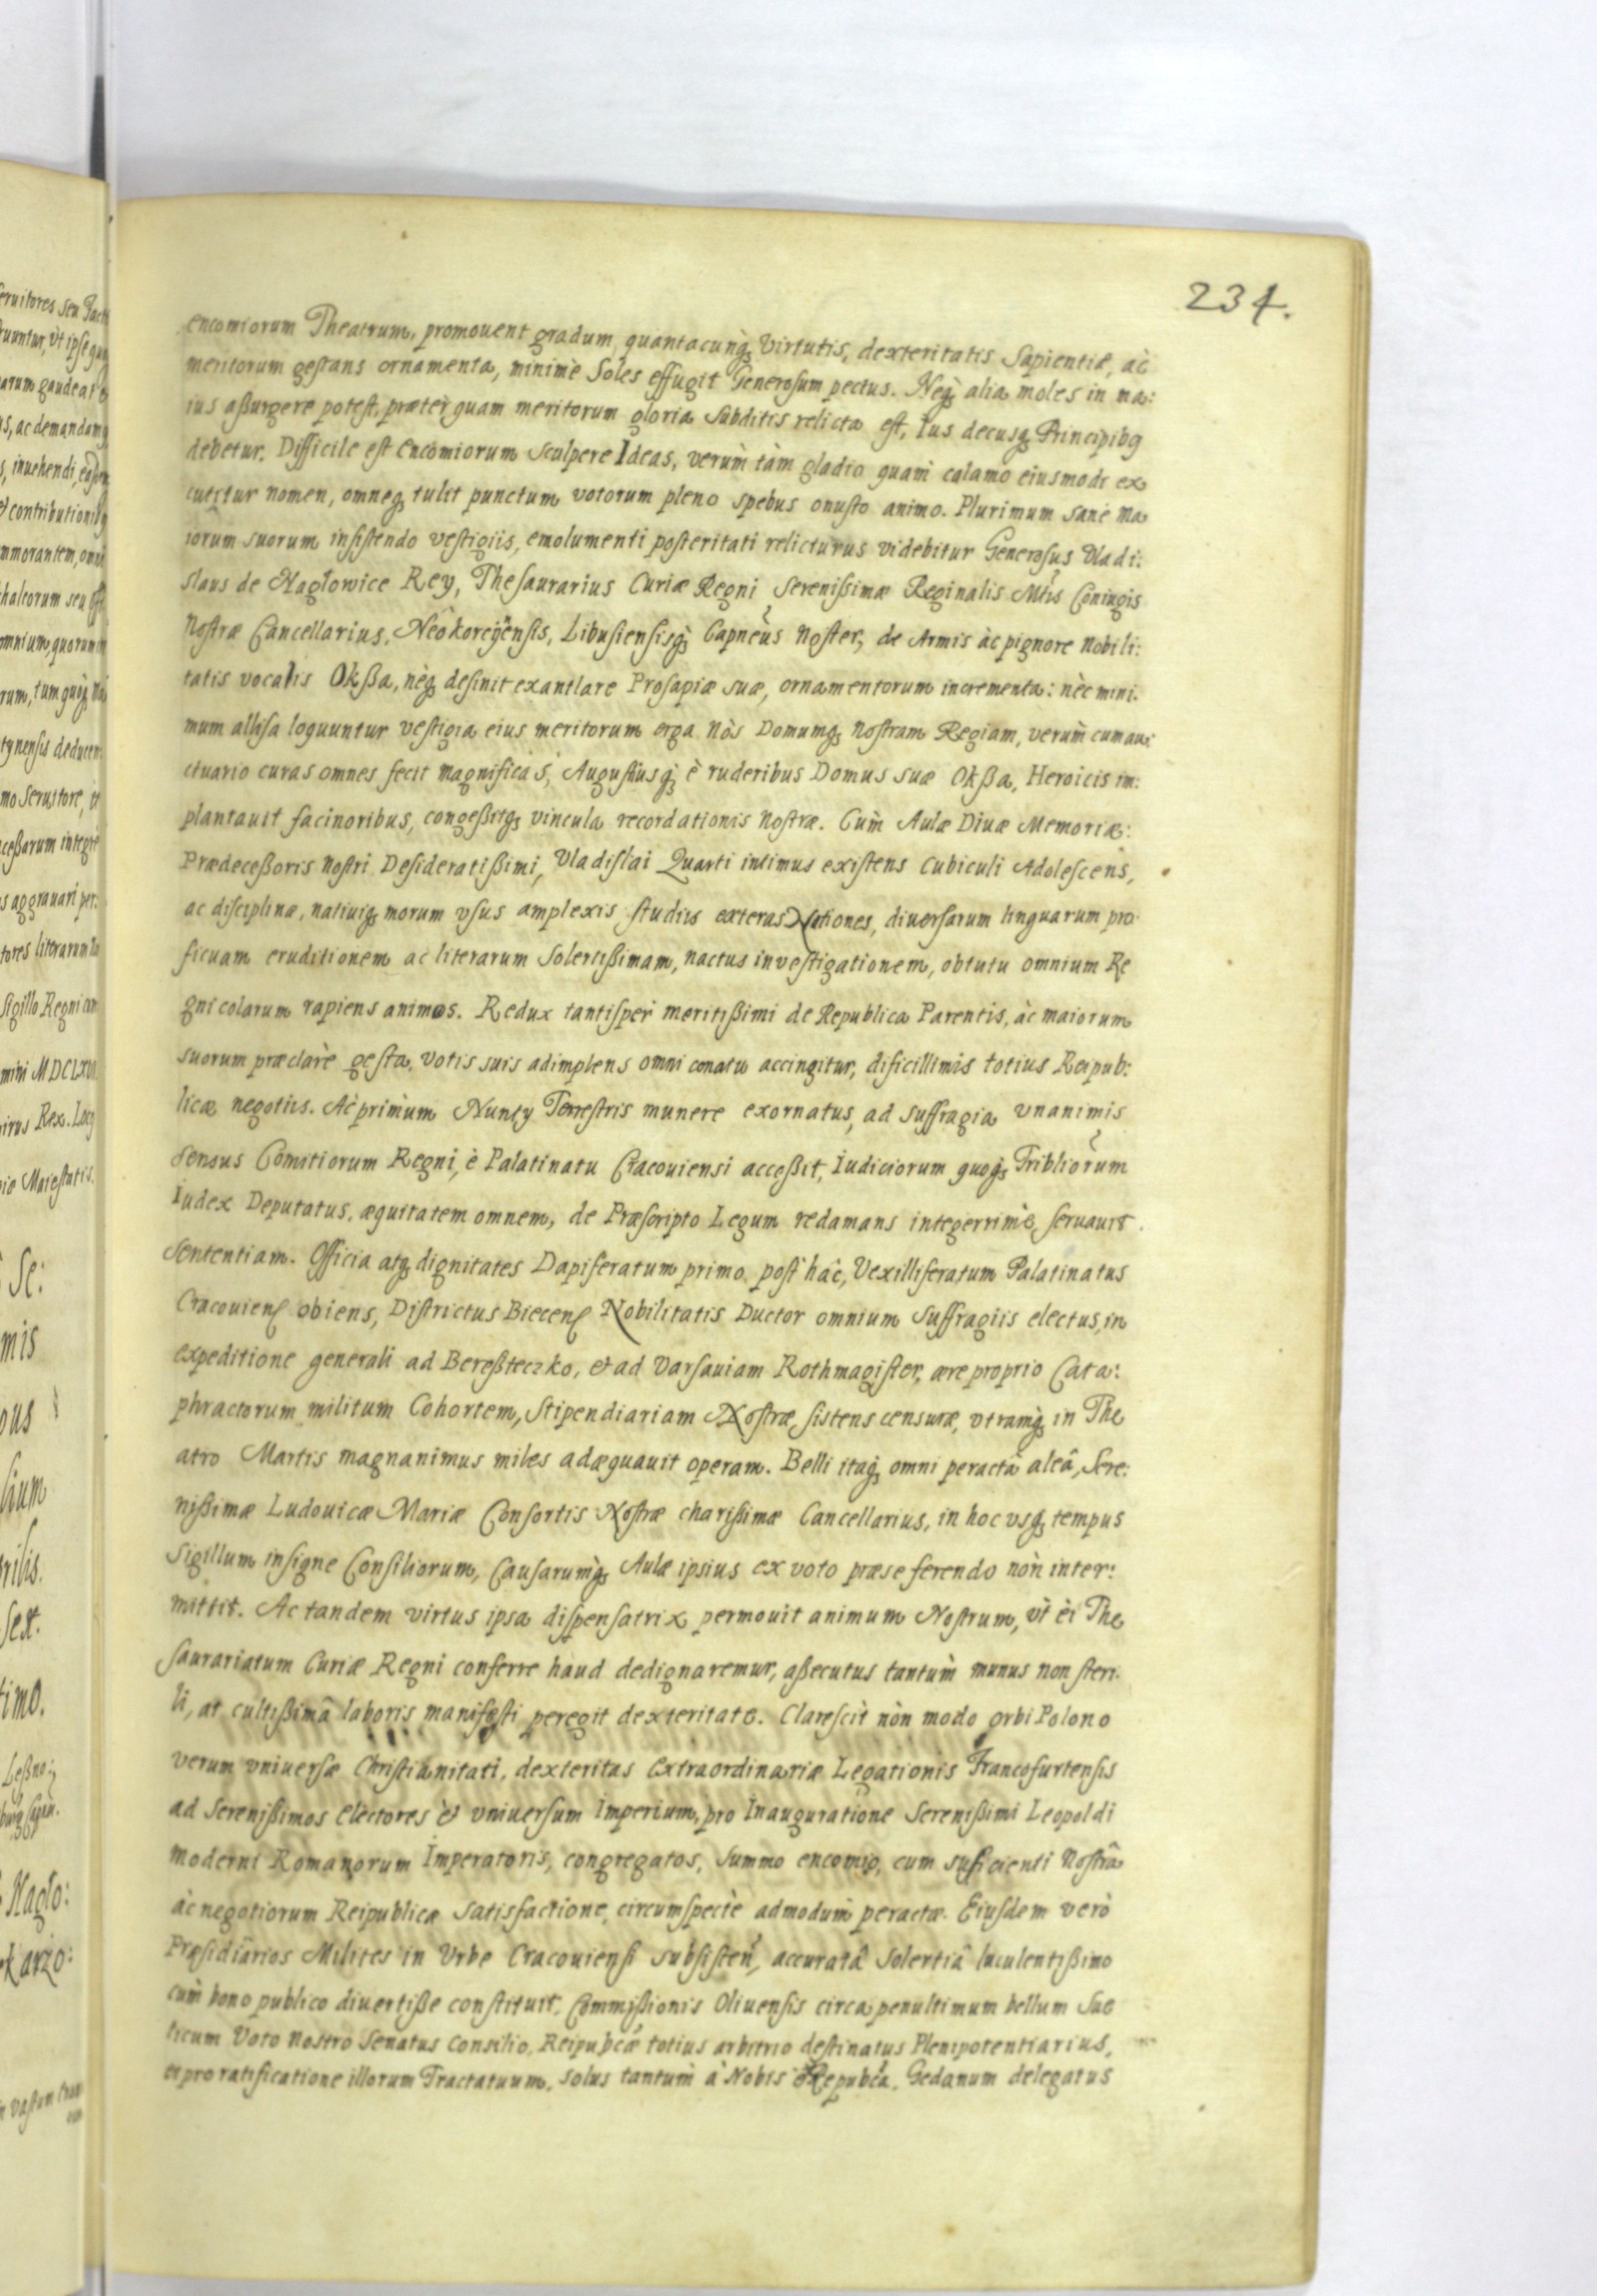 234.
encomiorum Theatrum, promouent gradum, quantacunq virtutis, dexteritatis Sapientiæ, àc
meritorum gestans ornamenta, minimè Soles effugit Generosum pectus. Neq alia moles in ma:
ius aßurgere potest, præter quam meritorum gloria subditis relicta est, Ius decusq Principibq
debetur. Difficile est encomiorum sculpere Ideas, verùm tàm gladio quam calamo eiusmodi ex
cutitur nomen, omneq tulit punctum votorum pleno spebus onusto animo. Plurimum sanè ma
iorum suorum insistendo vestigiis, emolumenti posteritati relicturus videbitur Generosus Vladi:
slaus de Nagłowice Rey, Thesaurarius Curiæ Regni Serenissimæ Reginalis Mtis Coniugis
Nostræ Cancellarius, Neokorcÿensis, Libusiensisq Capneus Noster, de Armis àc pignore Nobili:
tatis vocalis Okßa, nèq desinit exantlare Prosapiæ suæ, ornamentorum incrementa: nèc mini.
mum allisa loquuntur vestigia eius meritorum erga Nòs Domumq Nostram Regiam, verùm cum au:
ctuario curas omnes fecit magnificàs, Augustiusq è ruderibus Domus suæ Okßa, Heroicis im:
plantauit facinoribus, congeßitq vincula recordationis Nostræ. Cùm Aulæ Diuæ Memoriæ:
Prædeceßoris Nostri Desideratißimi, Vladislai Quarti intimus existens Cubiculi Adolescens,
ac disciplinæ, natiuiq morum vsus amplexis studiis exteras Nationes, diuersarum linguarum pro
ficuam eruditionem ac literarum Solertißimam, nactus investigationem, obtutu omnium Re
gnicolarum rapiens animos. Redux tantisper meritißimi de Republica Parentis, àc maiorum
suorum præclarè gesta, votis suis adimplens omni conatu accingitur, dificillimis totius Reipub:
licæ negotiis. Ac primùm Nuncÿ Terrestris munere exornatus, ad suffragia vnanimis
Sensus Comitiorum Regni, è Palatinatu Cracouiensi acceßit, Iudiciorum quoq Tribliorum
Iudex Deputatus, æquitatem omnem, de Præscripto Legum redamans integerrimè, seruauit
Sententiam. Officia atq dignitates Dapiferatum primo, post hâc, Vexilliferatum Palatinatus
Cracouiens obiens, Districtus Biecens Nobilitatis Ductor omnium suffragiis electus, in
expeditione generali ad Bereßteczko, et ad Varsauiam Rothmagister, ære proprio Cata:
phractorum militum Cohortem, Stipendiariam Nostræ, sistens censuræ, vtramq in The
atro Martis magnanimus miles adæquauit operam. Belli itaq omni peractâ aleâ, Sere:
nißimæ Ludouicæ Mariæ Consortis Nostræ charißimæ Cancellarius, in hoc vsq tempus
Sigillum insigne Consiliorum, Causarumq Aulæ ipsius ex voto præse ferendo nòn inter:
mittit. Ac tandem virtus ipsa dispensatrix permouit animum Nostrum, vt èi The
saurariatum Curiæ Regni conferre haud dedignaremur, aßecutus tantùm munus non steri.
li, at cultißimâ laboris manifesti peregit dexteritate. Clarescit nòn modo orbi Polono
verum vniuersæ Christianitati, dexteritas extraordinariæ Legationis Francofurtensis
ad Serenißimos Electores èt vniuersum Imperium, pro Inauguratione Serenißimi Leopoldi
moderni Romanorum Imperatoris, congregatos, summo encomio, cum suficienti Nostrâ
àc negotiorum Reipublicæ satisfactione, circumspectè admodùm peractæ. Eiusdem verò
Præsidiarios Milites in Vrbe Cracouiensi subsisten, accuratâ Solertiâ luculentißimo
cùm bono publico diuertiße constituit, Commißionis Oliuensis circa penultimum bellum Sue
ticum Voto Nostro Senatus Consilio, Reipubcæ totius arbitrio destinatus Plenipotentiarius,
et pro ratificatione illorum Tractatuum, solus tantùm à Nobis Repubca, Gedanum delegatus